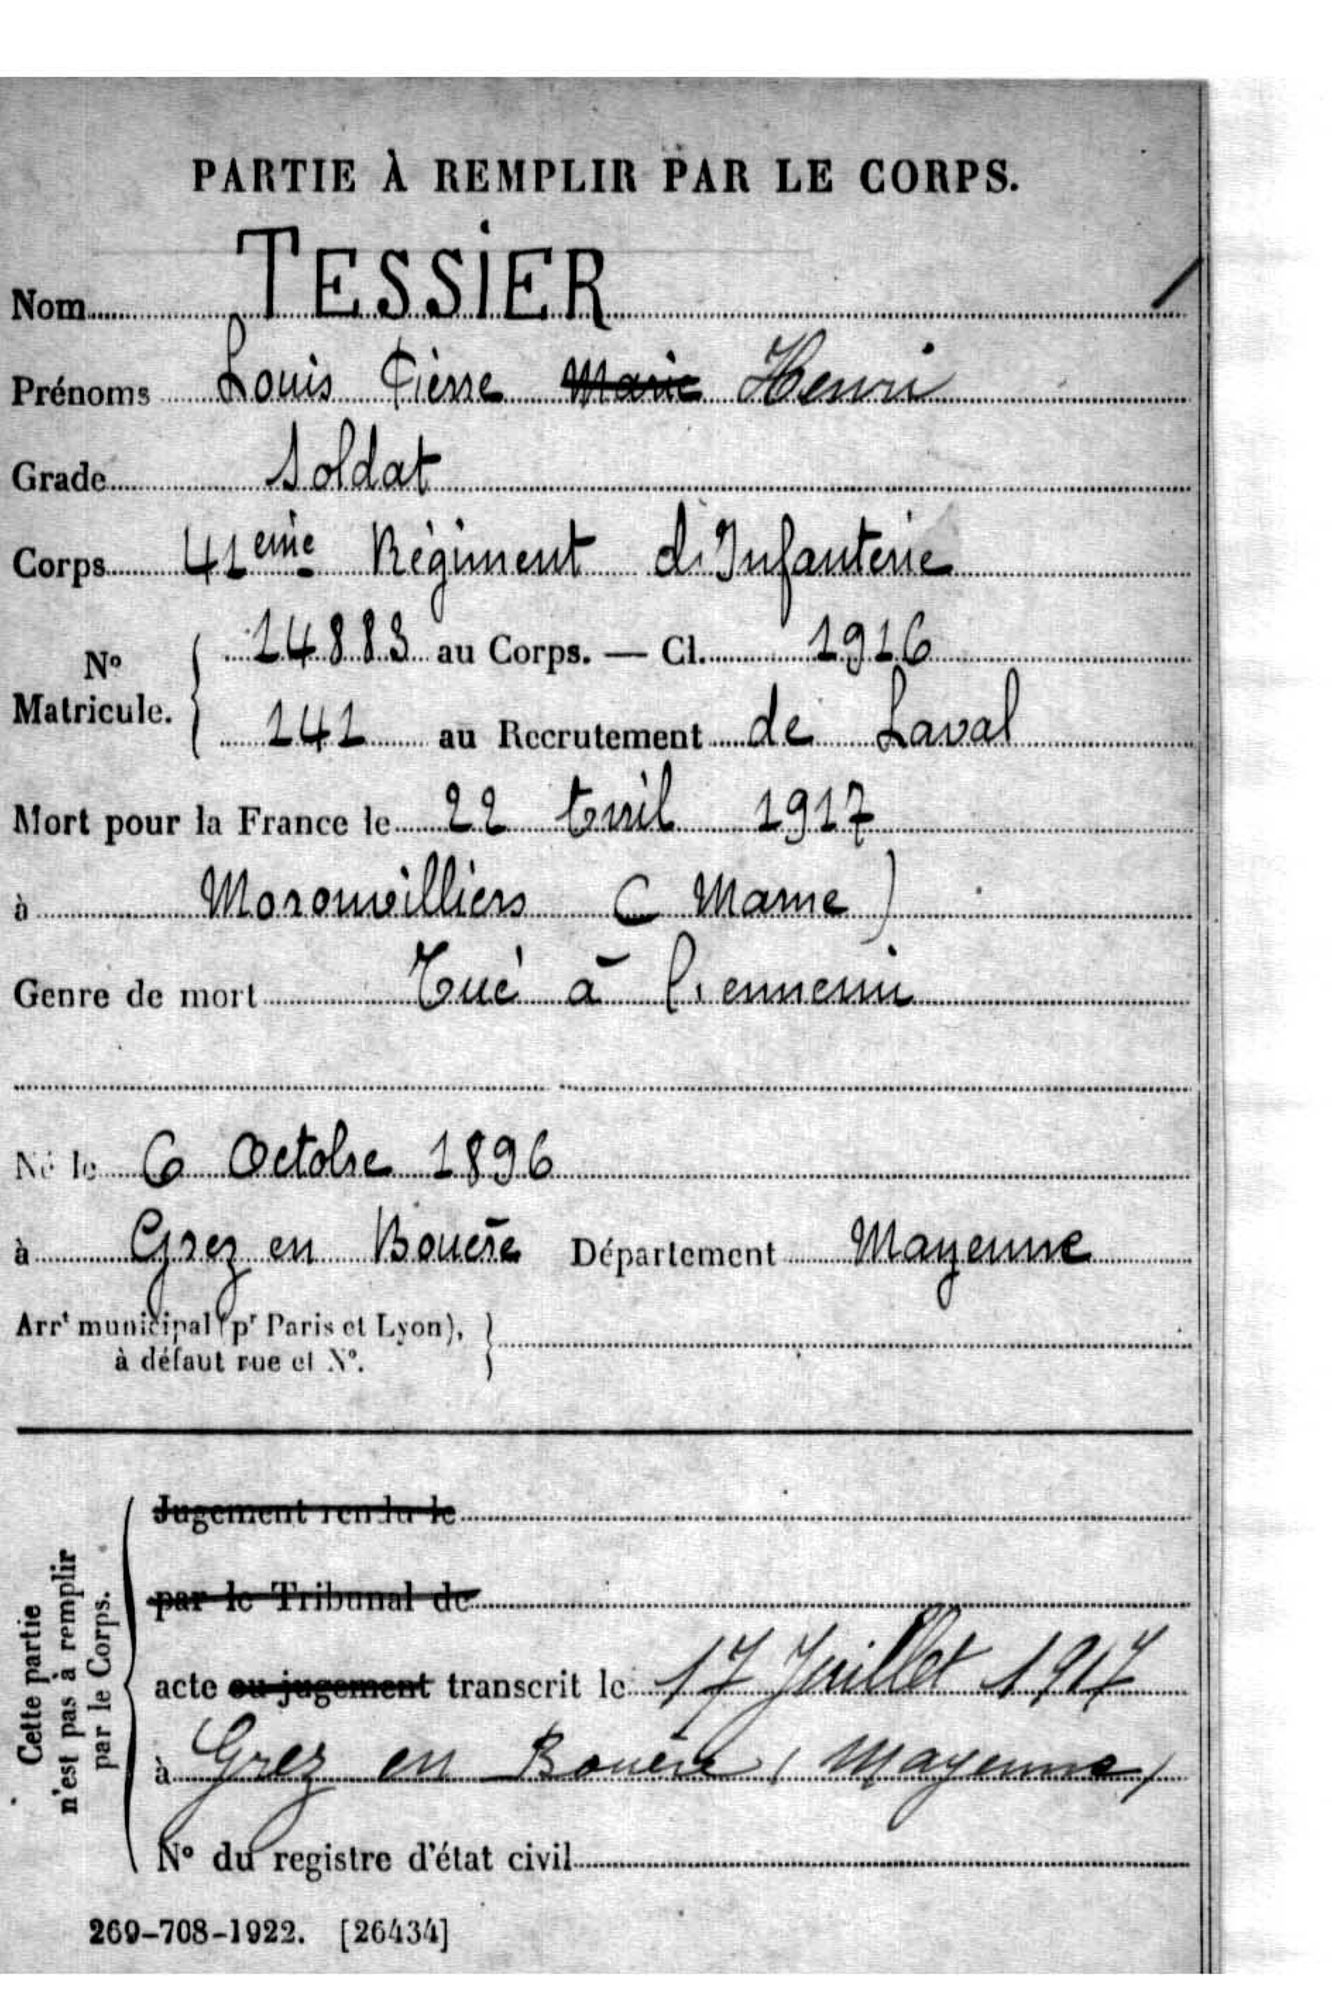 PARTIE À REMPLIR PAR LE CORPS.
Nom TESSIER
Prénoms Louis Pierre Marie Henri
Grade Soldat
Corps 41eme Régiment d'Infanterie
No Matricule. 14883 au Corps. — Cl. 1916
141 au Recrutement de Laval
Mort pour la France le 22 Avril 1917
à Moronvilliers (Marne)
Genre de mort Tué à l'ennemi
Né le 6 Octobre 1896
à Grez en Bouère Département Mayenne
Arrt municipal (pr Paris et Lyon),
à défaut rue et No.
Cette partie
n'est pas à remplir
par le Corps.
Jugement rendu le
par le Tribunal de
acte ou jugement transcrit le 17 Juillet 1917
à Grez en Bouère (Mayenne)
No du registre d'état civil
269-708-1922. [26434]